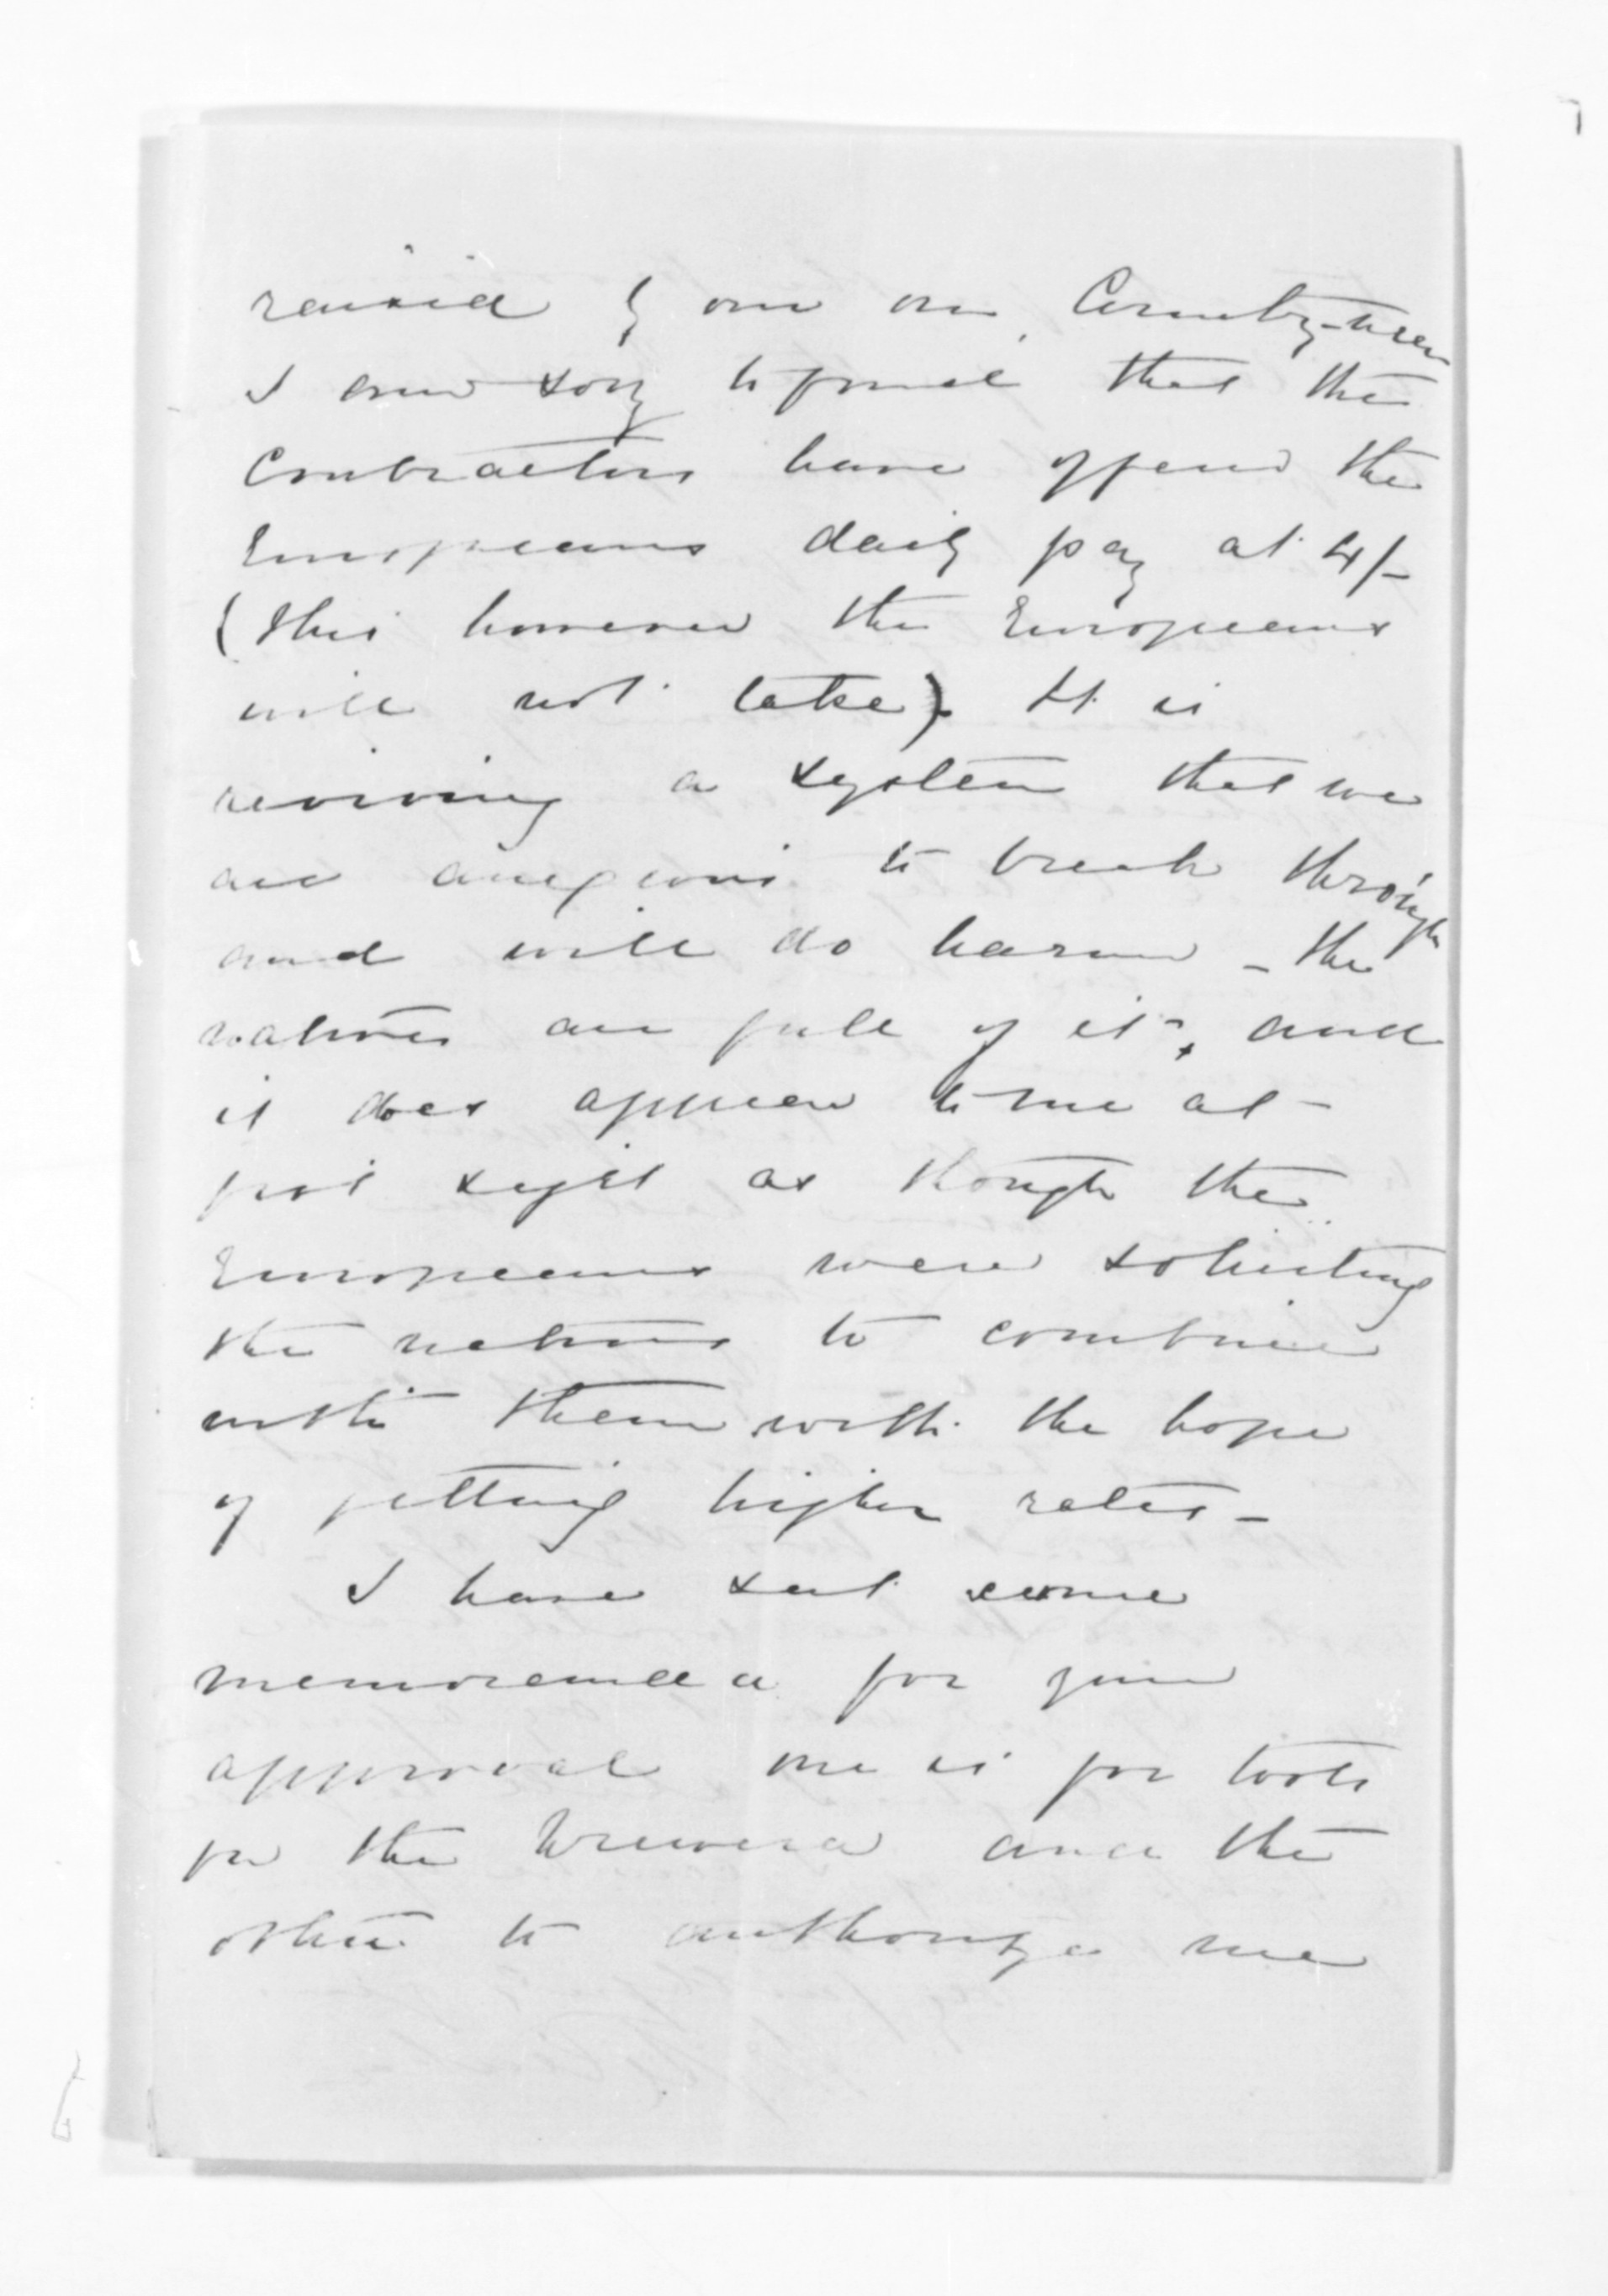 raised by our own Country-men
I am sorry to find that the
Contractors have offered the
Europeans daily pay at 4/-
(this however the Europeans
will not take). It is
reviving a system that we
are anxious to break through
and will do harm - the
natives are full of it, and
it does appear to me at
first sight as though the
Europeans were soliciting
the natives to combine
with them with the hope
of getting higher rates -
I have sent some
memoranda for your
approval one is for tools
for the Urewera and the
other to authorize me